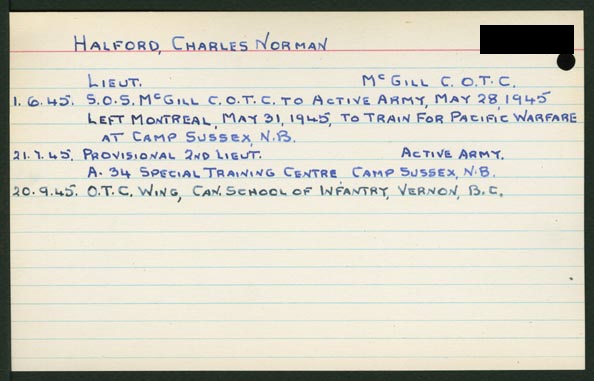 HALFORD, CHARLES NORMAN
LIEUT. McGILL C.O.T.C.
1.6.45. S.O.S. McGILL C.O.T.C. TO ACTIVE ARMY, MAY 28, 1945
LEFT MONTREAL, MAY 31, 1945, TO TRAIN FOR PACIFIC WARFARE
AT CAMP SUSSEX, N.B.
21.7.45. PROVISIONAL 2ND LIEUT. ACTIVE ARMY.
A-34 SPECIAL TRAINING CENTRE CAMP SUSSEX, N.B.
20.9.45. O.T.C. WING, CAN. SCHOOL OF INFANTRY, VERNON, B.C.